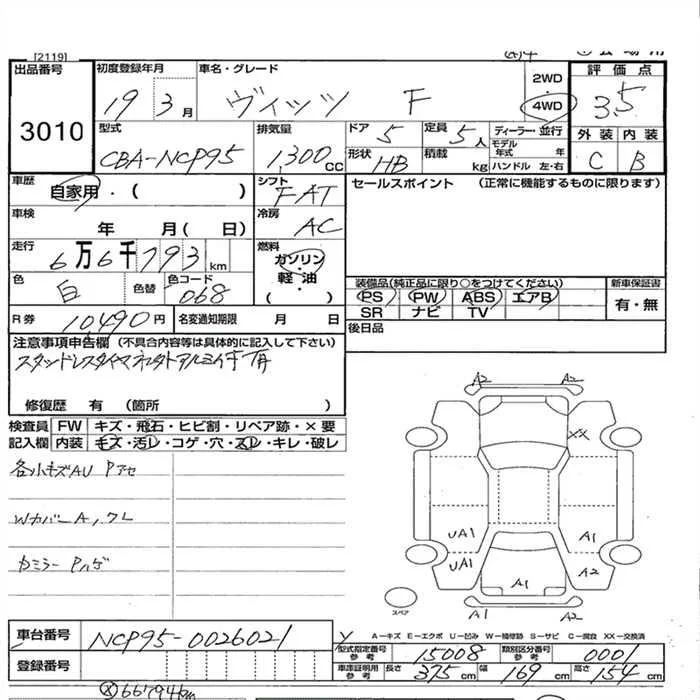 [2119]
出品番号 初度登録年月 車名・グレード 2WD 4WD 評価点
3010 19 3月 ヴィッツ F 3.5
型式 排気量 ドア 定員 ディーラー・並行 外装 内装
CBA-NCP95 1300cc 5 5人 モデル年式 年 C B
形状 HB 積載 kg ハンドル 左・右
車歴 自家用・( ) シフト FAT セールスポイント (正常に機能するものに限ります)
車検 年 月( 日) 冷房 AC
走行 6万6千793km 燃料 ガソリン・軽油 ( )
色 白 色替 色コード 068
装備品(純正品に限り○をつけてください) 新車保証書
PS PW ABS エアB 有・無
SR ナビ TV
R券 10,490円 名変通知期限 月 日 後日品
注意事項申告欄 (不具合内容等は具体的に記入して下さい)
修復歴 有 (箇所 )
検査員 FW キズ・飛石・ヒビ割・リペア跡・×要
記入欄 内装 キズ・汚レ・コゲ・穴・スレ・キレ・破レ
各小キズAU Pアセ
WカバーA,ワレ
Fミラー Pハゲ
A2 A2
XX
UA1 A1
UA1 A1 A2
スペア A1 A2
車台番号 NCP95-0026021
A-キズ E-エクボ U-凹み W-補修跡 S-サビ C-腐食 XX-交換済
型式指定番号 参考 15008 類別区分番号 参考 0001
登録番号 車庫証明用 参考 長さ 375cm 幅 169cm 高さ 154cm
66794km